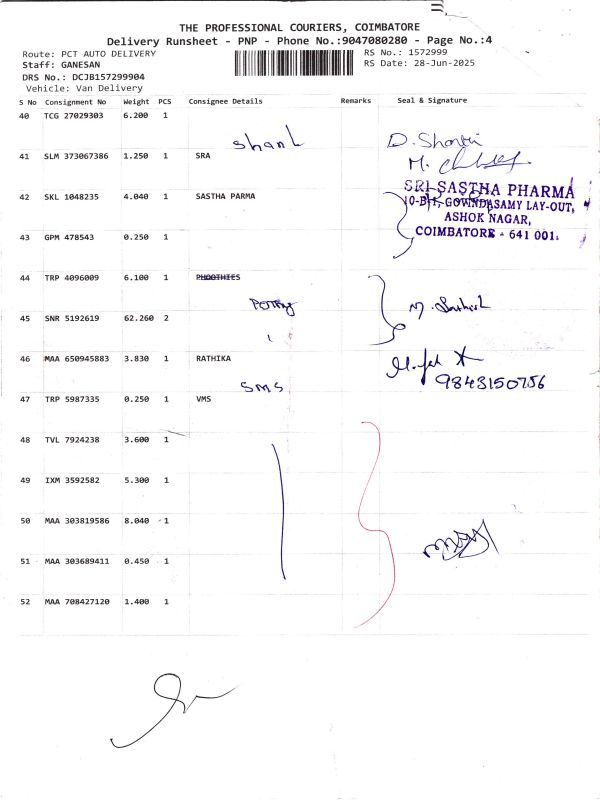 THE PROFESSIONAL COURIERS, COIMBATORE
Delivery Runsheet - PNP - Phone No.:9047080280 - Page No.:4
Route: PCT AUTO DELIVERY RS No.: 1572999
Staff: GANESAN RS Date: 28-Jun-2025
DRS No.: DCJB157299904
Vehicle: Van Delivery
S No Consignment No Weight PCS Consignee Details Remarks Seal & Signature
40 TCG 27029303 6.200 1
41 SLM 373067386 1.250 1 SRA
42 SKL 1048235 4.040 1 SASTHA PARMA
SRI SASTHA PHARMA
GOWNDASAMY LAY-OUT,
ASHOK NAGAR,
COIMBATORE - 641 001.
43 GPM 478543 0.250 1
44 TRP 4096009 6.100 1
45 SNR 5192619 62.260 2
46 MAA 650945883 3.830 1 RATHIKA
9843150756
SMS
47 TRP 5987335 0.250 1 VMS
48 TVL 7924238 3.600 1
49 IXM 3592582 5.300 1
50 MAA 303819586 8.040 1
51 MAA 303689411 0.450 1
52 MAA 708427120 1.400 1